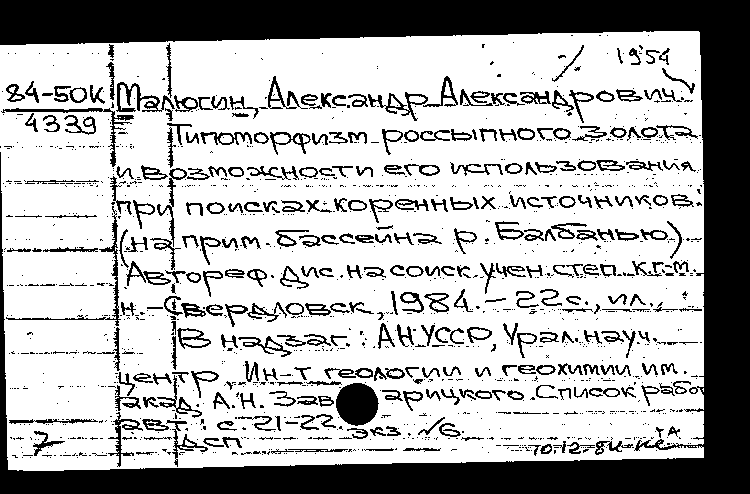 1954
84-50К Малюгин, Александр Александрович.
4339
Типоморфизм россыпного золота
и возможности его использования
при поисках коренных источников.
(на прим. бассейна р. Балбанью)
Автореф. дис. на соиск. учен. степ. к.г.-м.
н. - Свердловск, 1984. - 22 с., ил.,
В надзаг.: АН УССР, Урал. науч.
центр, Ин-т геологии и геохимии им.
акад. А.Н. Зав арицкого. Список работ
авт.: с. 21-22. экз. №6
7 ДСП 10.12.84